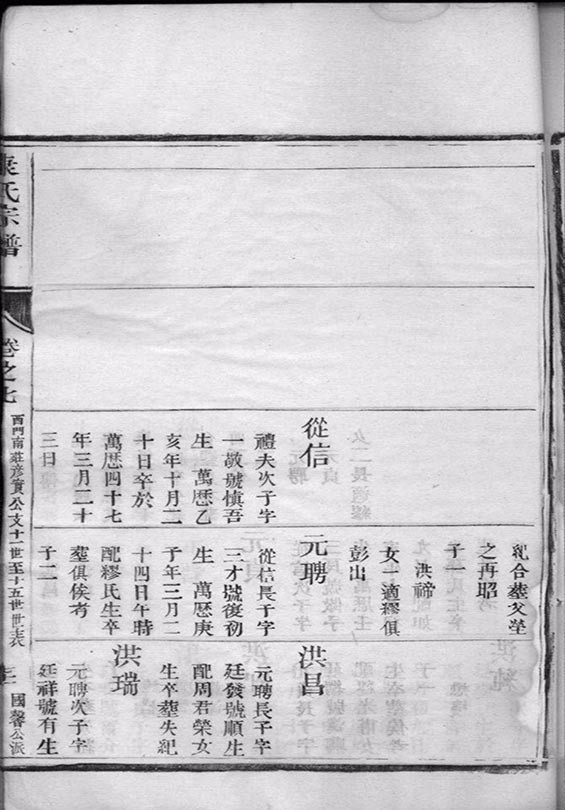 從信
禮夫次子字
一敬號慎吾
生 萬歷乙
亥年十月二
十日卒於
萬歷四十七
年三月二十
三日
合塟父塋
之再昭
子一
洪禘
女 適繆俱
彭出
元聘
從信長子字
三才號復初
生 萬歷庚
子年三月二
十四日午時
配繆氏生卒
塟俱俟考
子二
洪昌
元聘長子字
廷發號順生
配周君榮女
生卒塟失紀
洪瑞
元聘次子字
廷祥號有生
氏宗譜
卷之七
西門南莊彥實公支十一世至十五世世表
國馨公派